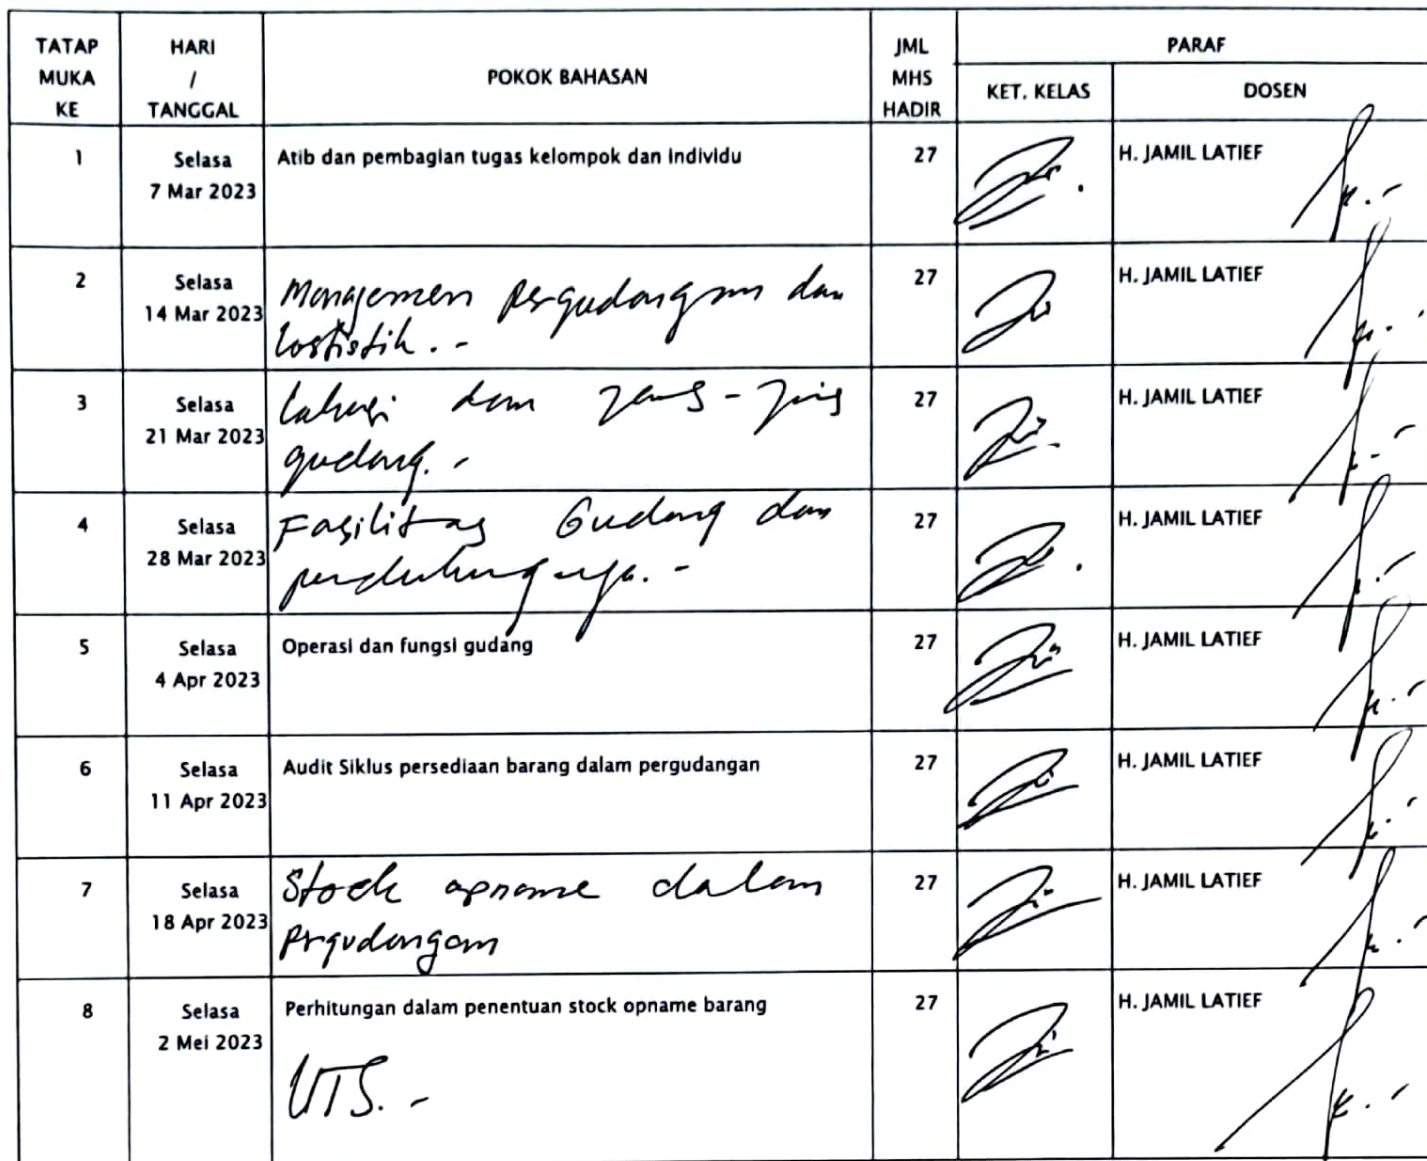 TATAP MUKA KE
HARI / TANGGAL
POKOK BAHASAN
JML MHS HADIR
PARAF
KET. KELAS
DOSEN
1
Selasa
7 Mar 2023
Atib dan pembagian tugas kelompok dan individu
27
H. JAMIL LATIEF
2
Selasa
14 Mar 2023
Manajemen pergudangan dan
27
H. JAMIL LATIEF
3
Selasa
21 Mar 2023
dan
gudang. -
27
H. JAMIL LATIEF
4
Selasa
28 Mar 2023
Fasilitas Gudang dan
pendukungnya. -
27
H. JAMIL LATIEF
5
Selasa
4 Apr 2023
Operasi dan fungsi gudang
27
H. JAMIL LATIEF
6
Selasa
11 Apr 2023
Audit Siklus persediaan barang dalam pergudangan
27
H. JAMIL LATIEF
7
Selasa
18 Apr 2023
Stock opname dalam
Prgudangan
27
H. JAMIL LATIEF
8
Selasa
2 Mei 2023
Perhitungan dalam penentuan stock opname barang
UTS. -
27
H. JAMIL LATIEF